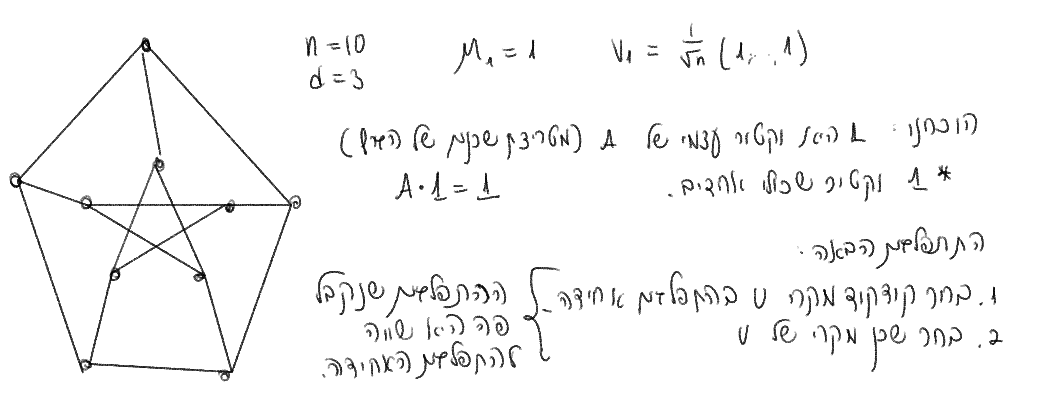 n = 10
d = 3
μ₁ = 1
V₁ = 1/√n (1, .., 1)
הוכחנו: 1 היא וקטור עצמי של A (מטריצת שכנות של הגרף)
* 1 וקטור שכולו אחדים.
A · 1 = 1
התפלגות הבאה:
1. בחר קודקוד מקרי U בהתפלגות אחידה.
2. בחר שכן מקרי של U
ההתפלגות שנקבל
פה היא שווה
להתפלגות האחידה.